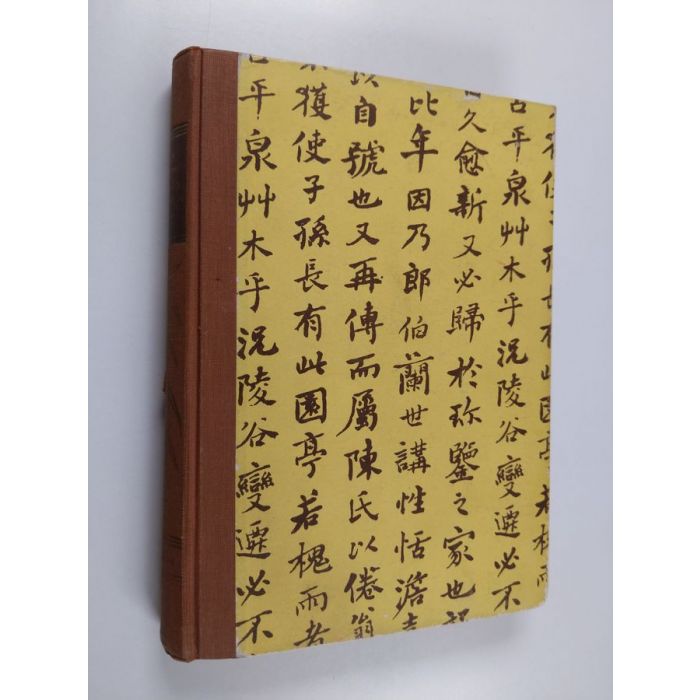 園亭若槐雨
平泉艸木乎況陵谷變遷必不
久愈新又必歸於珍鑒之家也
比年因乃郎伯蘭世講性恬澹
以自號也又再傳而屬陳氏以倦翁
獲使子孫長有此園亭若槐雨者
平泉艸木乎況陵谷變遷必不